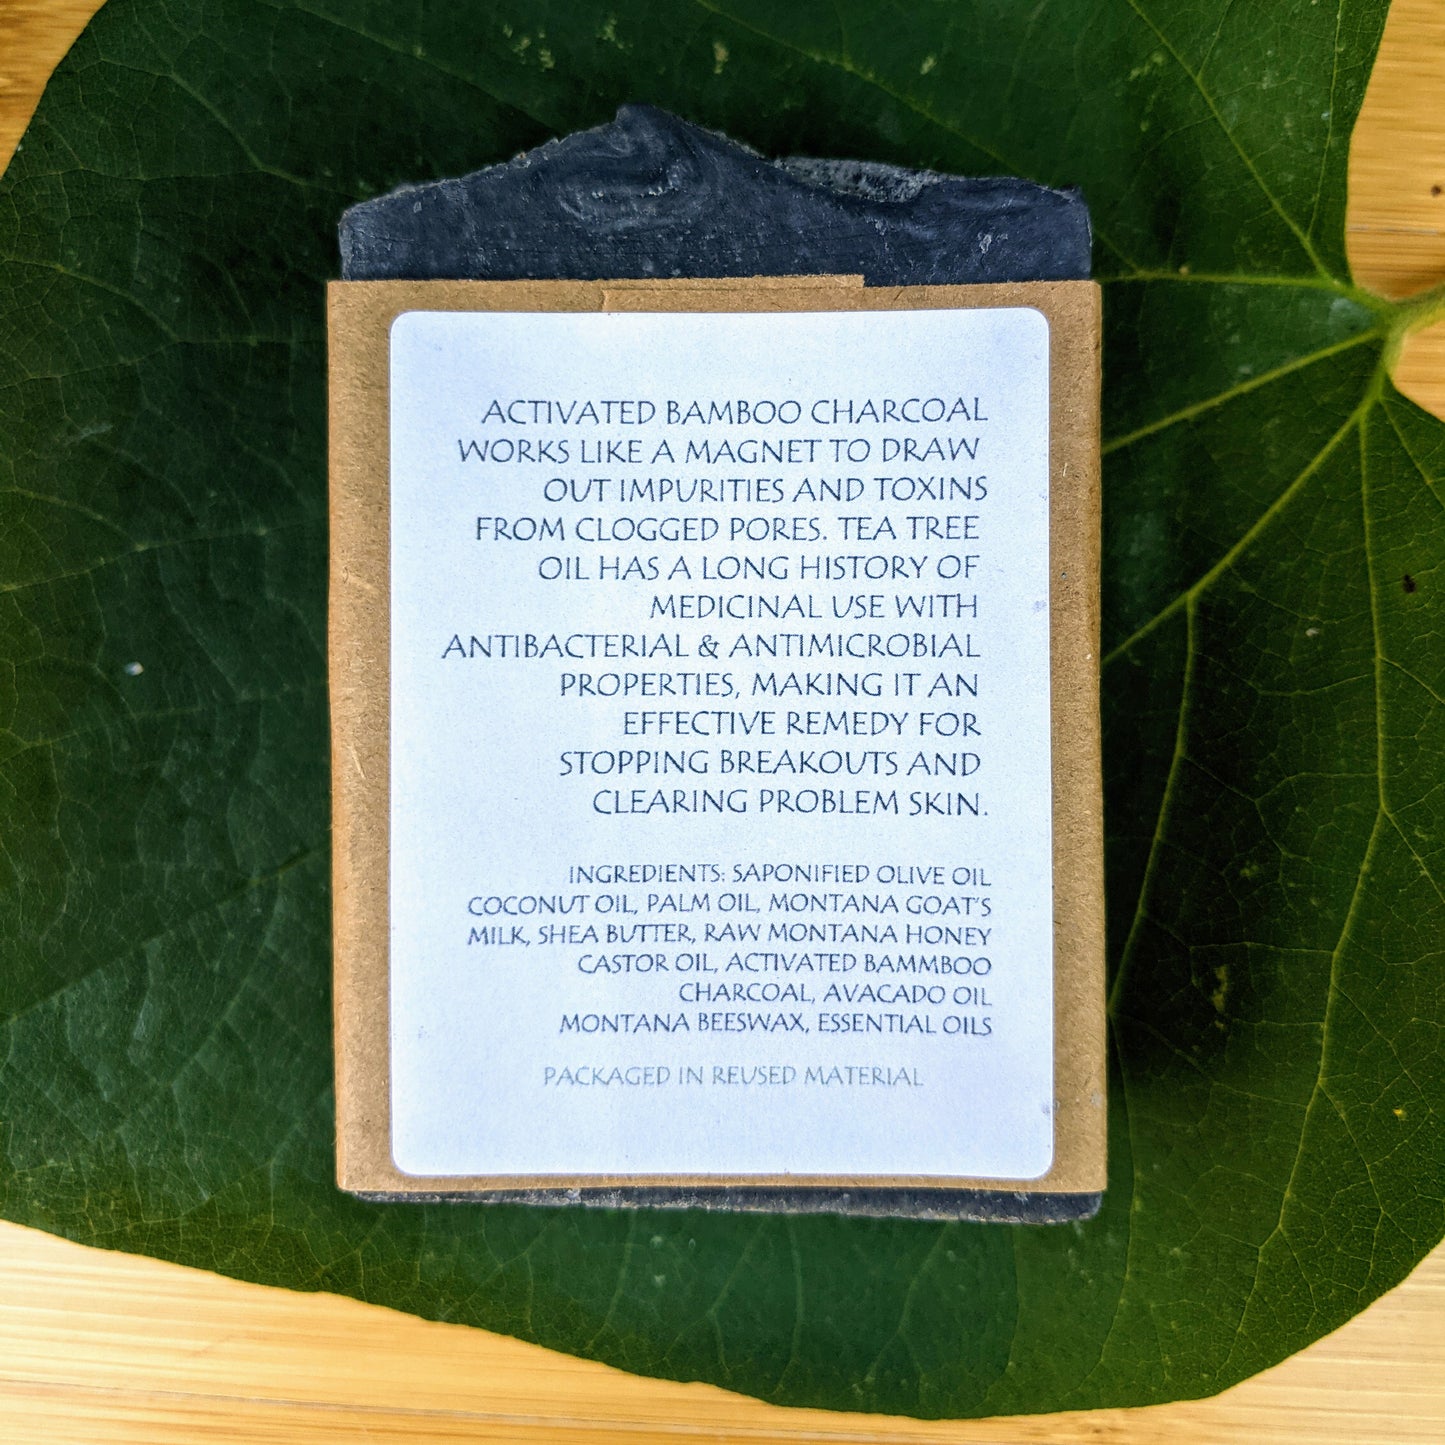 ACTIVATED BAMBOO CHARCOAL
WORKS LIKE A MAGNET TO DRAW
OUT IMPURITIES AND TOXINS
FROM CLOGGED PORES. TEA TREE
OIL HAS A LONG HISTORY OF
MEDICINAL USE WITH
ANTIBACTERIAL & ANTIMICROBIAL
PROPERTIES, MAKING IT AN
EFFECTIVE REMEDY FOR
STOPPING BREAKOUTS AND
CLEARING PROBLEM SKIN.
INGREDIENTS: SAPONIFIED OLIVE OIL
COCONUT OIL, PALM OIL, MONTANA GOAT'S
MILK, SHEA BUTTER, RAW MONTANA HONEY
CASTOR OIL, ACTIVATED BAMMBOO
CHARCOAL, AVACADO OIL
MONTANA BEESWAX, ESSENTIAL OILS
PACKAGED IN REUSED MATERIAL